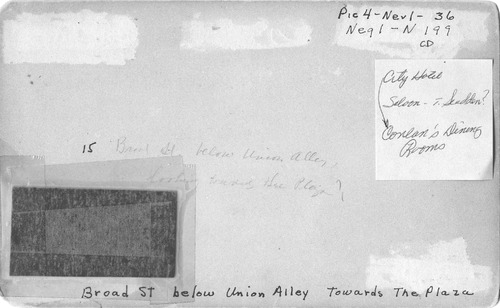 Pic 4-Nev1- 36
Neg1-N 199
CD
City Hotel
Saloon - T. Scudder?
Conlan's Dining
Rooms
15 Broad St. below Union Alley,
looking towards the Plaza?
Broad ST below Union Alley Towards The Plaza